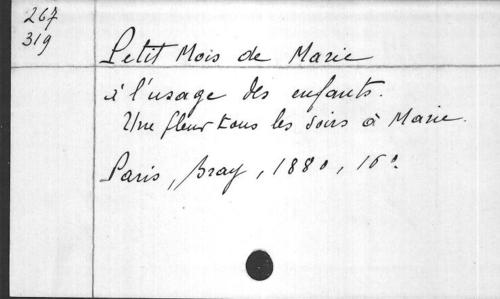 267
319
Petit Mois de Marie
à l'usage des enfants.
Une fleur tous les soirs à Marie.
Paris, Bray, 1880, 16º.